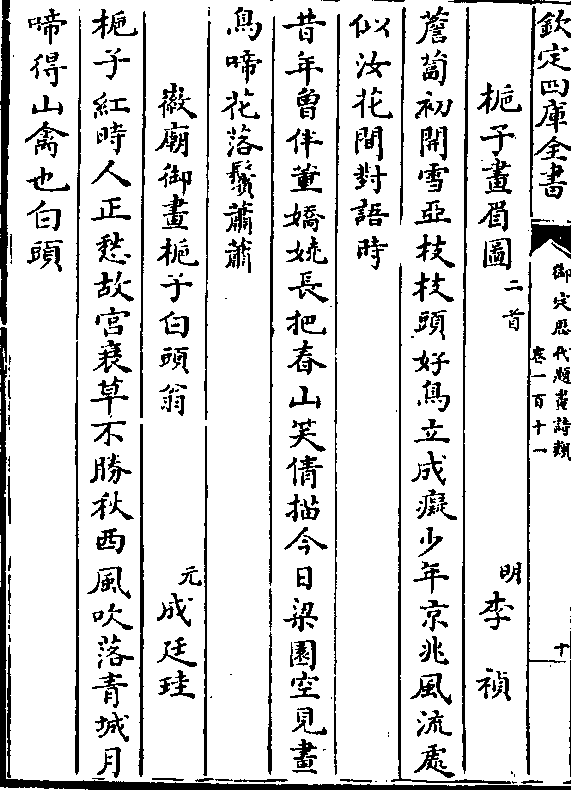 欽定四庫全書
御定歷代題畫詩類
卷一百十一
十
梔子畫眉圖二首
明李禎
薝蔔初開雪亞枝枝頭好鳥立成癡少年京兆風流處
似汝花間對語時
昔年曾伴董嬌嬈長把春山笑倩描今日梁園空見畫
鳥啼花落鬢蕭蕭
徽廟御畫梔子白頭翁
元成廷珪
梔子紅時人正愁故宮衰草不勝秋西風吹落青城月
啼得山禽也白頭